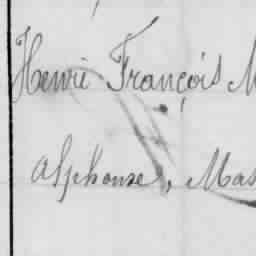 Henri François M
Alphonse, Mas